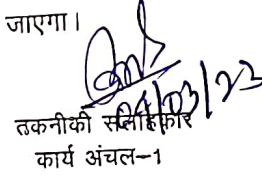 जाएगा।
24/03/23
तकनीकी सलाहकार
कार्य अंचल-1